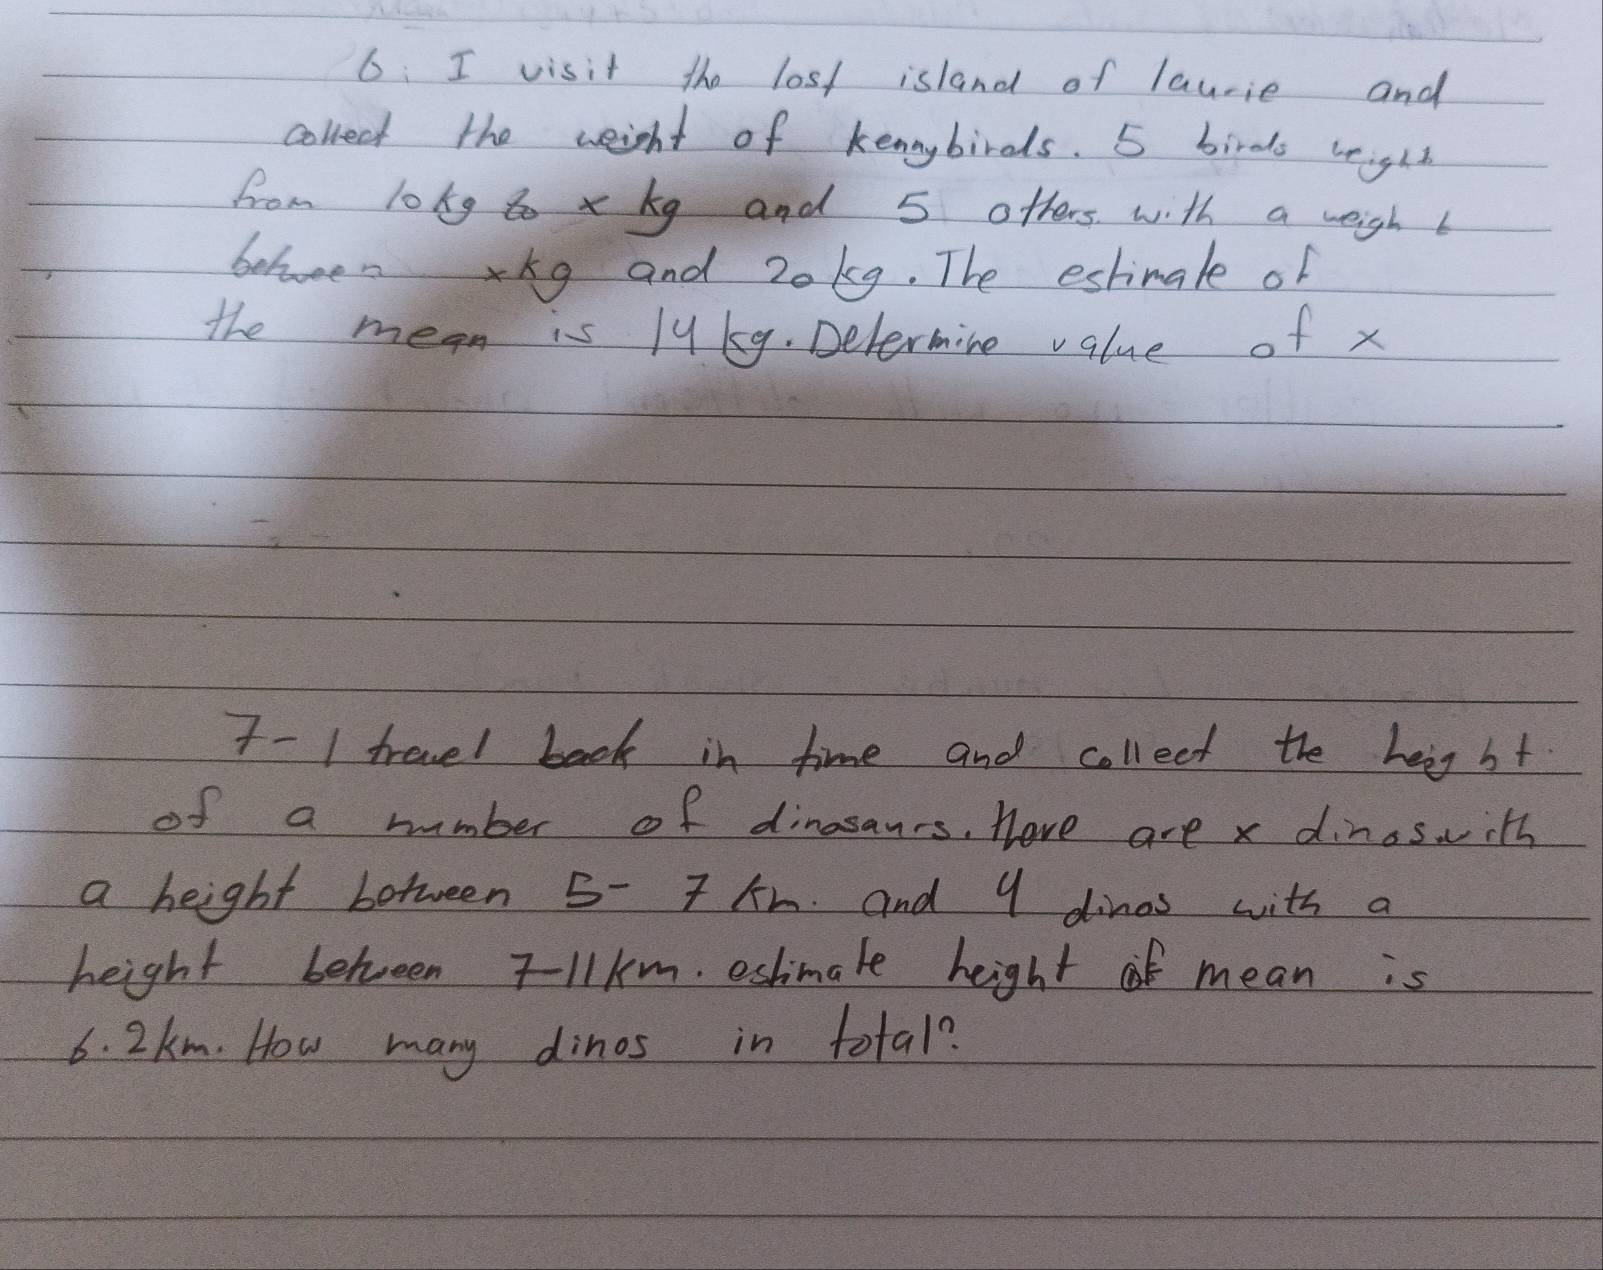 6: I visit the lost island of laurie and
collect the weight of kennybirds. 5 birds weight
from 10kg to x kg and 5 others with a weight
between x kg and 20 kg. The estimate of
the mean is 14 kg. Determine value of x
7- I travel back in time and collect the height
of a number of dinosaurs. Here are x dinos with
a height between 5- 7 km. and 4 dinos with a
height between 7-11 km. estimate height of mean is
6.2km. How many dinos in total?